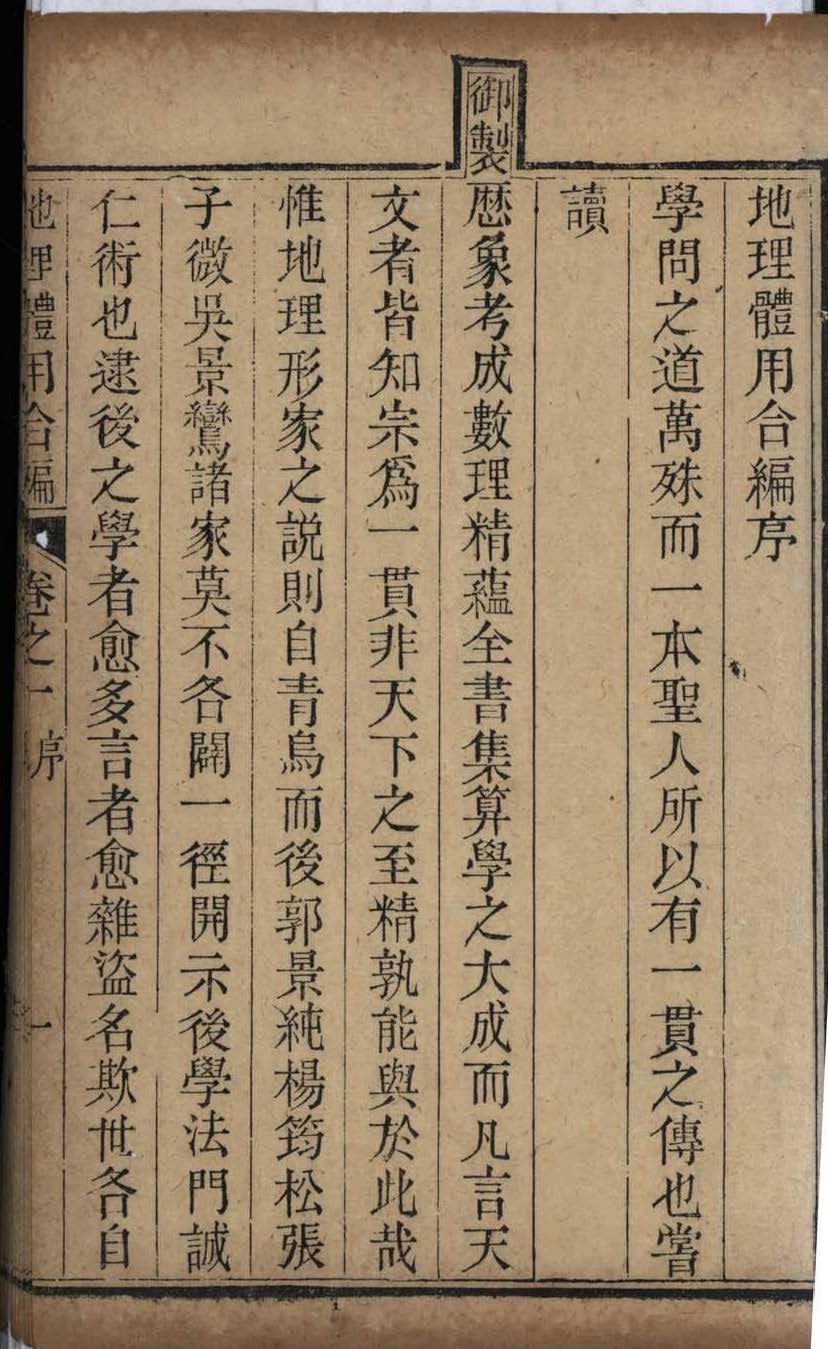 地理體用合編序
學問之道萬殊而一本聖人所以有一貫之傳也嘗
讀
御製
厯象考成數理精蘊全書集算學之大成而凡言天
文者皆知宗爲一貫非天下之至精孰能與於此哉
惟地理形家之説則自青烏而後郭景純楊筠松張
子微吳景鸞諸家莫不各闢一徑開示後學法門誠
仁術也逮後之學者愈多言者愈雜盜名欺世各自
地理體用合編 卷之一 序 一